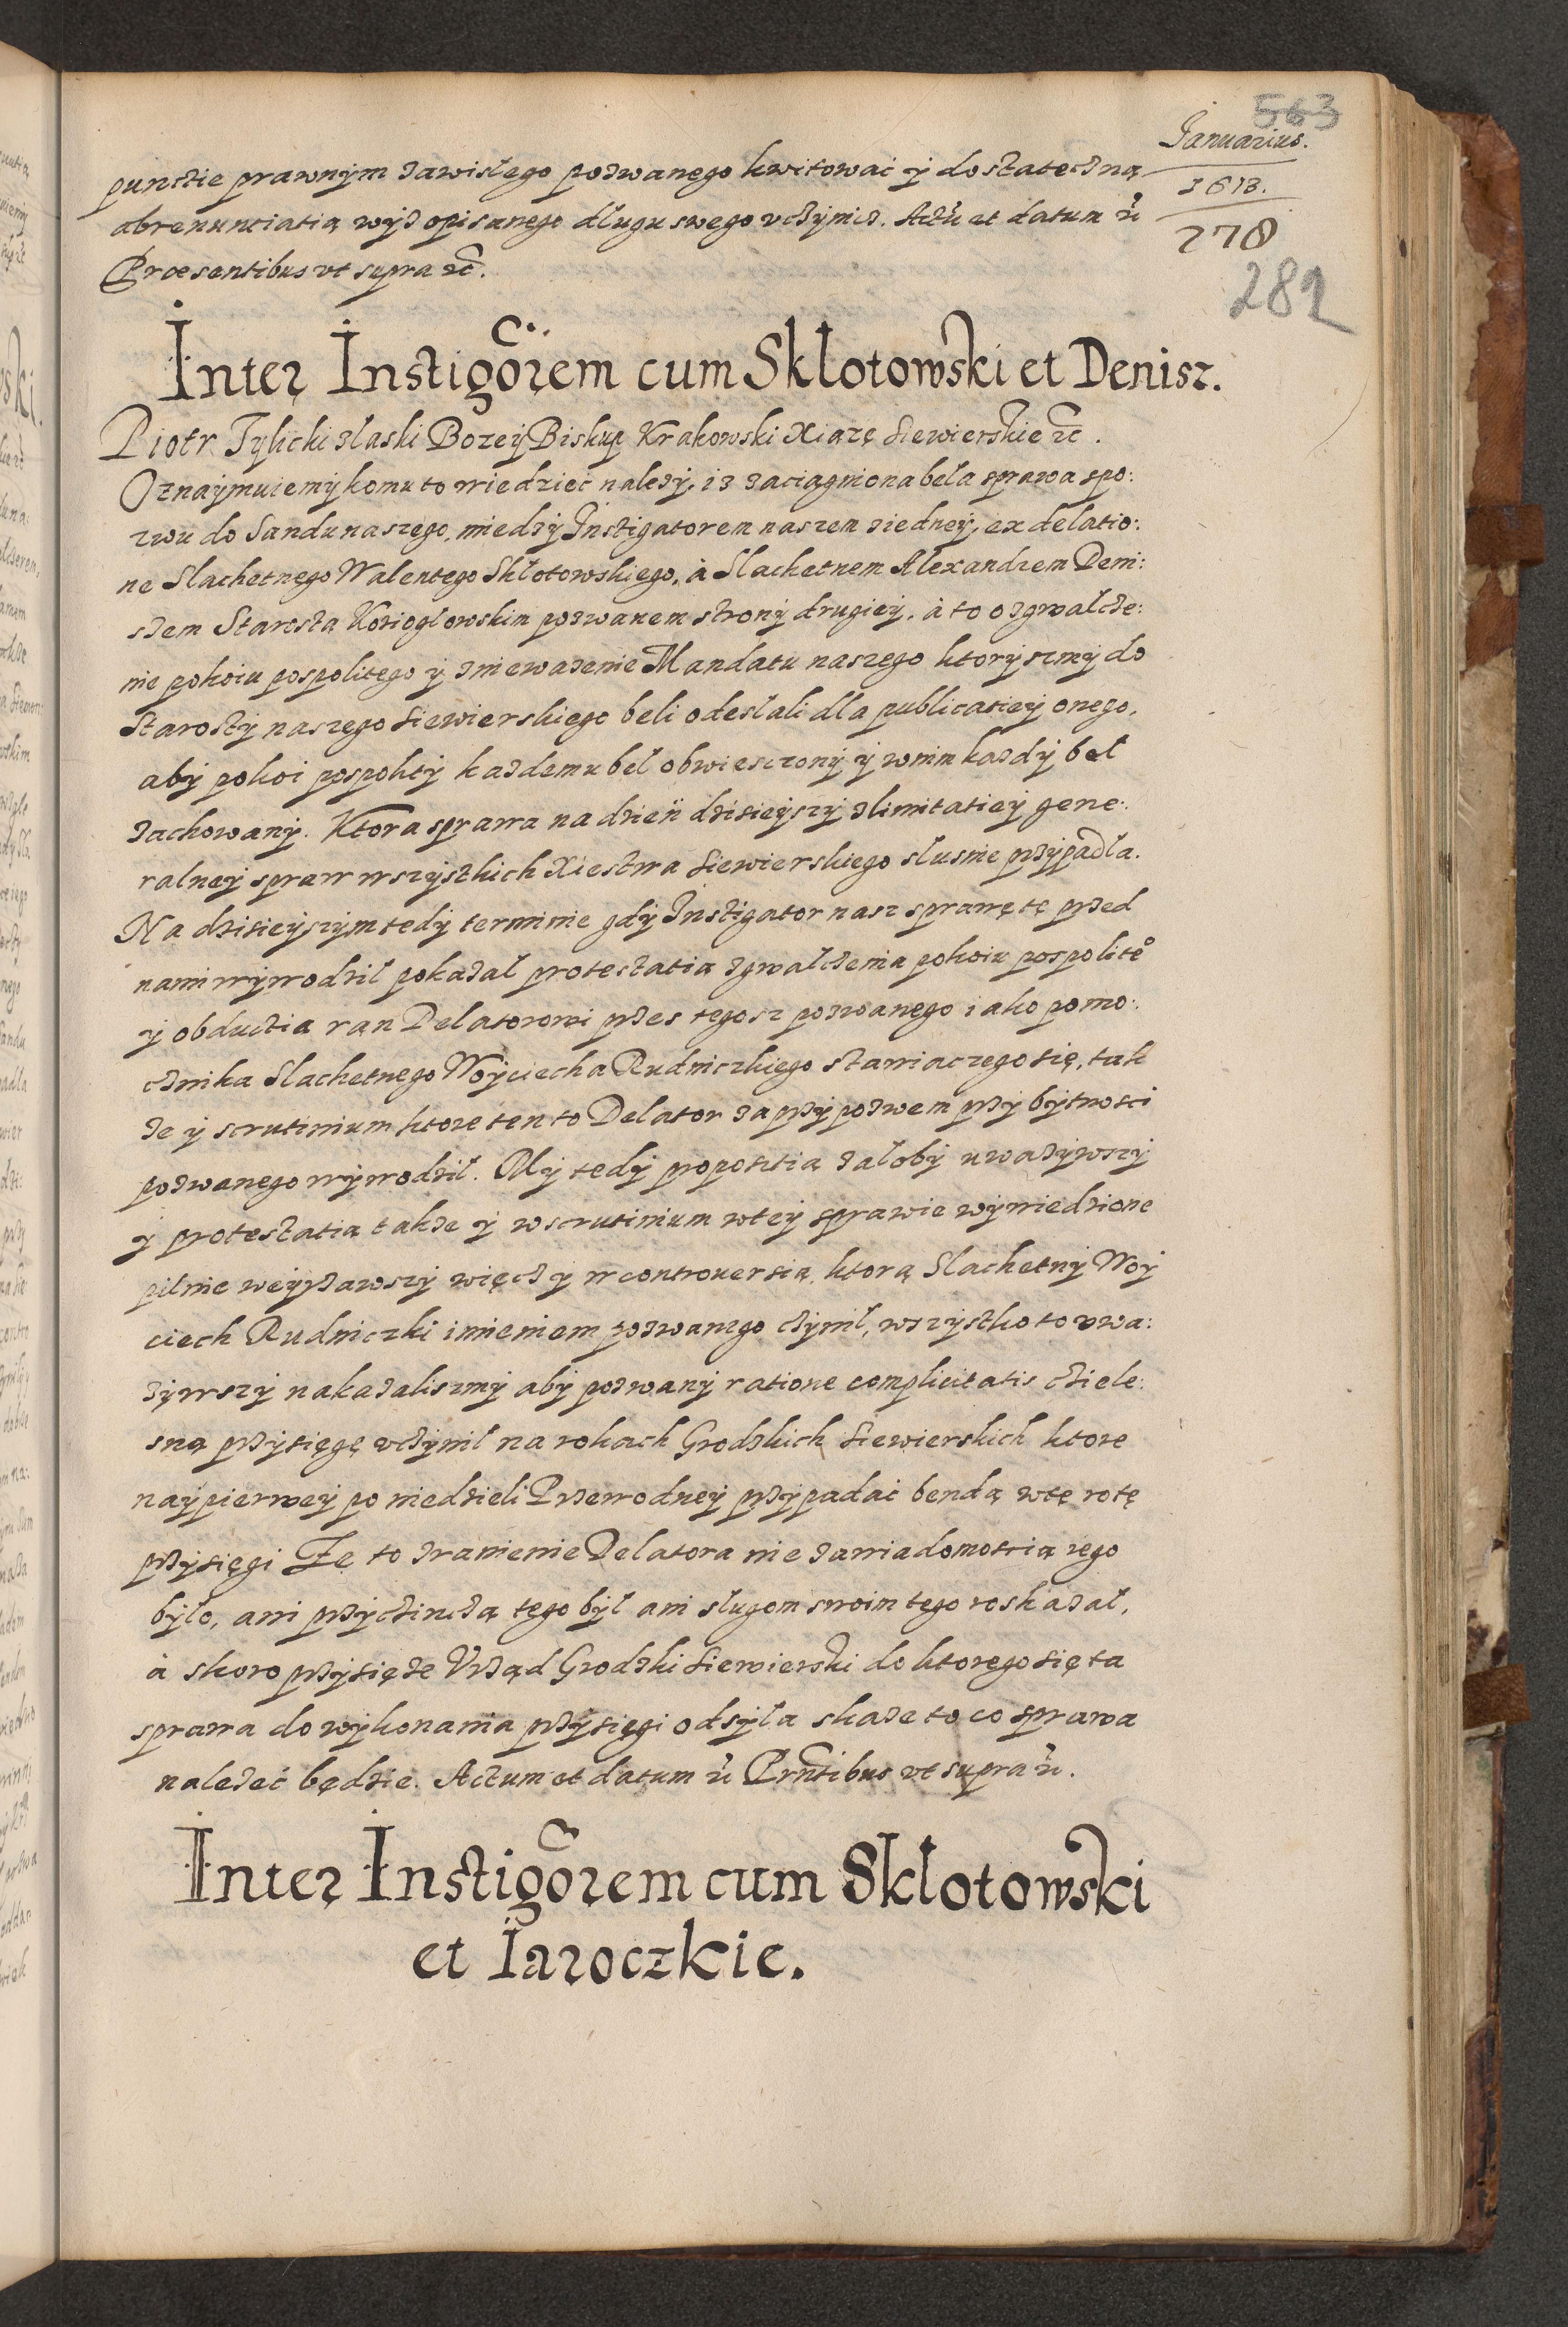 563
Januarius.
1613.
278
282
punctie prawnym zawisłego pozwanego kwitować y dostateczną
abrenuntiatią wyż opisanego długu swego vczynić. Actū et datum ꝛc̄
Præsentibus vt supra ꝛc̄.
Inter Instigōrem cum Skłotowski et Denisz.
Piotr Tylicki złaski Bozey Biskup Krakowski Xiązę Siewierskie ꝛc̄.
Oznaymuiemy komu to wiedzieć nalezy, iz zaciągniona beła sprawa spo:
zwu do Sandu naszego, miedzy Instigatorem naszem ziedney, ex delatio:
ne Slachetnego Walentego Skłotowskiego, à Slachetnem Alexandrem Deni:
szem Starostą Koziogłowskim pozwanem strony drugiey, à to o zgwałcze:
nie pokoiu pospolitego y zniewazenie Mandatu naszego ktoryszmy do
Starosty naszego Siewierskiego beli odesłali dla publicatiey onego,
aby pokoi pospolity kazdemu beł obwiesczony y wnim kazdy beł
zachowany. Ktora sprawa na dzień dzisieyszy zlimitatiey gene:
ralney spraw wszystkich Xiestwa Siewierskiego słusnie przypadła.
Na dzisieyszym tedy terminie gdy Instigator nasz sprawę tę przed
nami wywodził pokazał protestatia zgwałczenia pokoiu pospolite°
y obductia ran Delatorowi przes tegosz pozwanego iako pomo:
cznika Slachetnego Woyciecha Rudniczkiego stawiaczego się, tak
ze y scrutinium ktore ten to Delator za przypozwem przy bytnosci
pozwanego wywodził. My tedy propositią załoby uwazywszy
y protestatią takze y wscrutinium wtey sprawie wywiedzione
pilnie weyzrawszy więcz y w controuersią, ktorą Slachetny Woy
ciech Rudniczki imieniem pozwanego czynił, wszystko to vwa:
zywszy nakazaliszmy aby pozwany ratione complicitatis cziele:
sną przysięgę vczynił na rokach Grodzkich Siewierskich ktore
naypierwey po niedzieli Przewodney przypadać bendą wtę rotę
przysięgi Ze to zranienie Delatora nie zawiadomoscią iego
było, ani przyczinczą tego był ani sługom swoim tego roskazał,
à skoro przysięze Vrząd Grodzki Siewierski do ktorego się ta
sprawa do wykonania przysięgi odsyła skaze to co sprawa
nalezeć będzie. Actum et datum ꝛc̄ Prn̄tibus vt supra ꝛc̄.
Inter Instigōrem cum Skłotowski
et Jaroczkie.